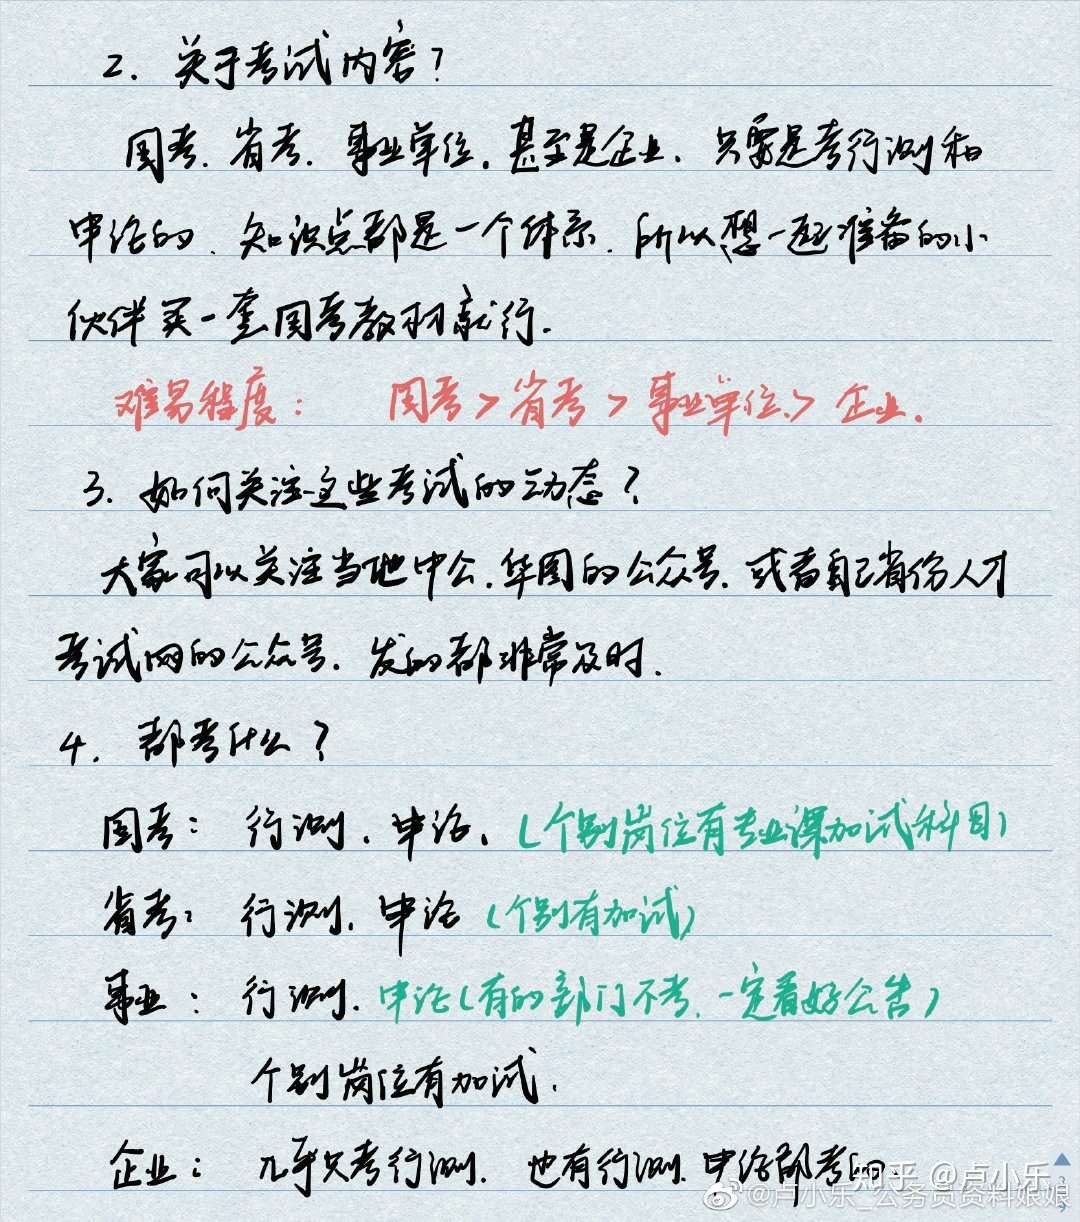 2. 关于考试内容?
国考、省考、事业单位,甚至是企业、只要是考行测和
申论的、知识点都是一个体系、所以想一起准备的小
伙伴买一套国考教材就行.
难易程度: 国考>省考>事业单位>企业.
3. 如何关注这些考试的动态?
大家可以关注当地中公、华图的公众号、或者自己省份人才
考试网的公众号、发的都非常及时.
4. 都考什么?
国考: 行测、申论、(个别岗位有专业课加试科目)
省考: 行测、申论(个别有加试)
事业: 行测、申论(有的部门不考、一定看好公告)
个别岗位有加试.
企业: 几乎只考行测、也有行测、申论都考的
知乎 @卢小乐
@卢小乐_公务员资料娘娘